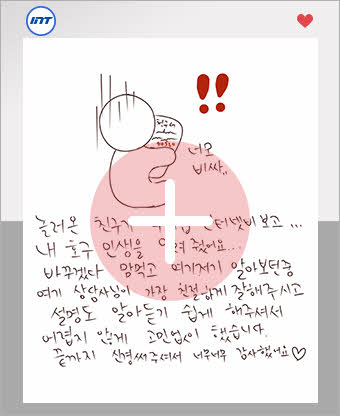 INT
!!
너모
비싸..
놀러온 친구가 인터넷비 보고 ...
내 호구 인생을 려 줬어요...
바꾸겠다 맘먹고 여기저기 알아보던중
여기 상담사님이 가장 친절하게 잘해주시고
설명도 알아듣기 쉽게 해주셔서
어렵지 않게 고민없이 했습니다.
끝까지 신경써주셔서 너무너무 감사했어요♡